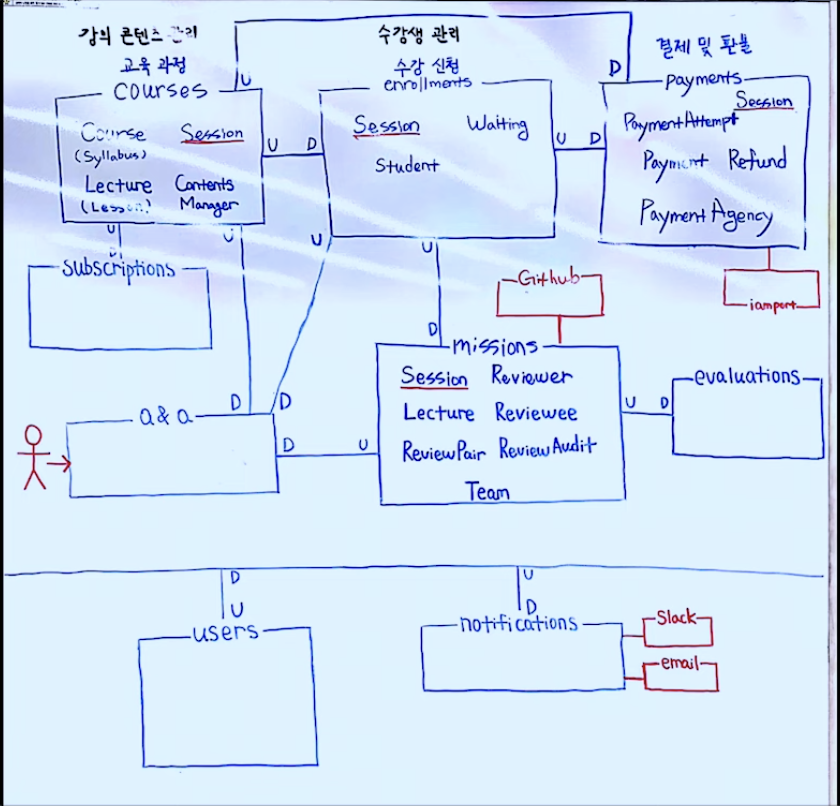 강의 콘텐츠 관리
교육 과정
courses
Course Session
(Syllabus)
Lecture Contents
(Lesson) Manager
수강생 관리
수강 신청
enrollments
Session Waiting
Student
결제 및 환불
payments
Session
PaymentAttempt
Payment Refund
Payment Agency
U
D
U D
U D
U
D
U
U
U
D
subscriptions
Github
iamport
missions
Session Reviewer
Lecture Reviewee
ReviewPair ReviewAudit
Team
U D
evaluations
D D
Q & A
D U
D
U
users
U
D
notifications
Slack
email